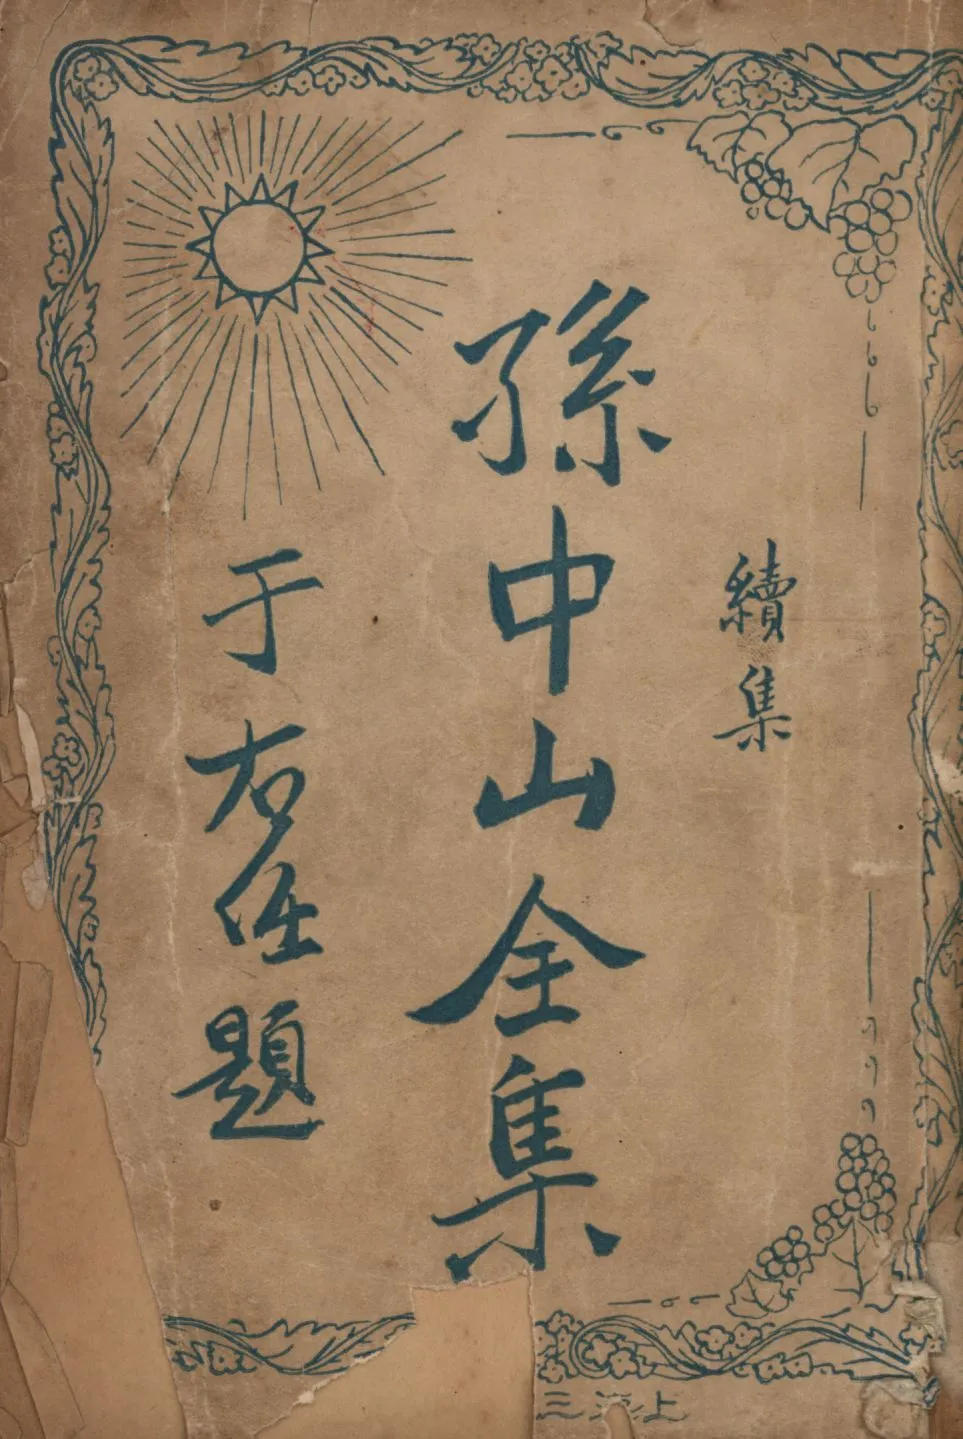 續集
孫中山全集
于右任題
上海三